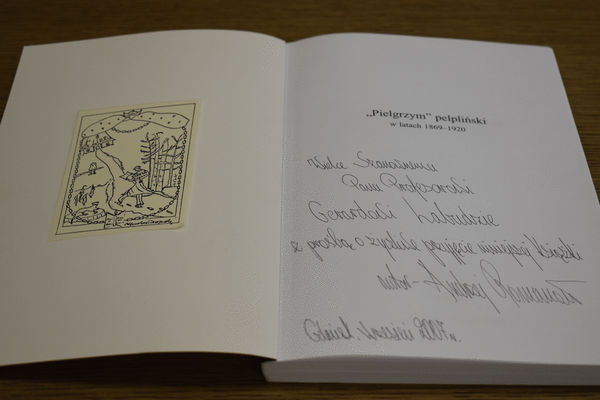 „Pielgrzym” pelpliński
w latach 1869–1920
Wielce Szanownemu
Panu Profesorowi
Gerardowi Labudzie
z prośbą o życzliwe przyjęcie niniejszej książki
autor - Andrzej Romanow
Gdańsk, wrzesień 2007 r.